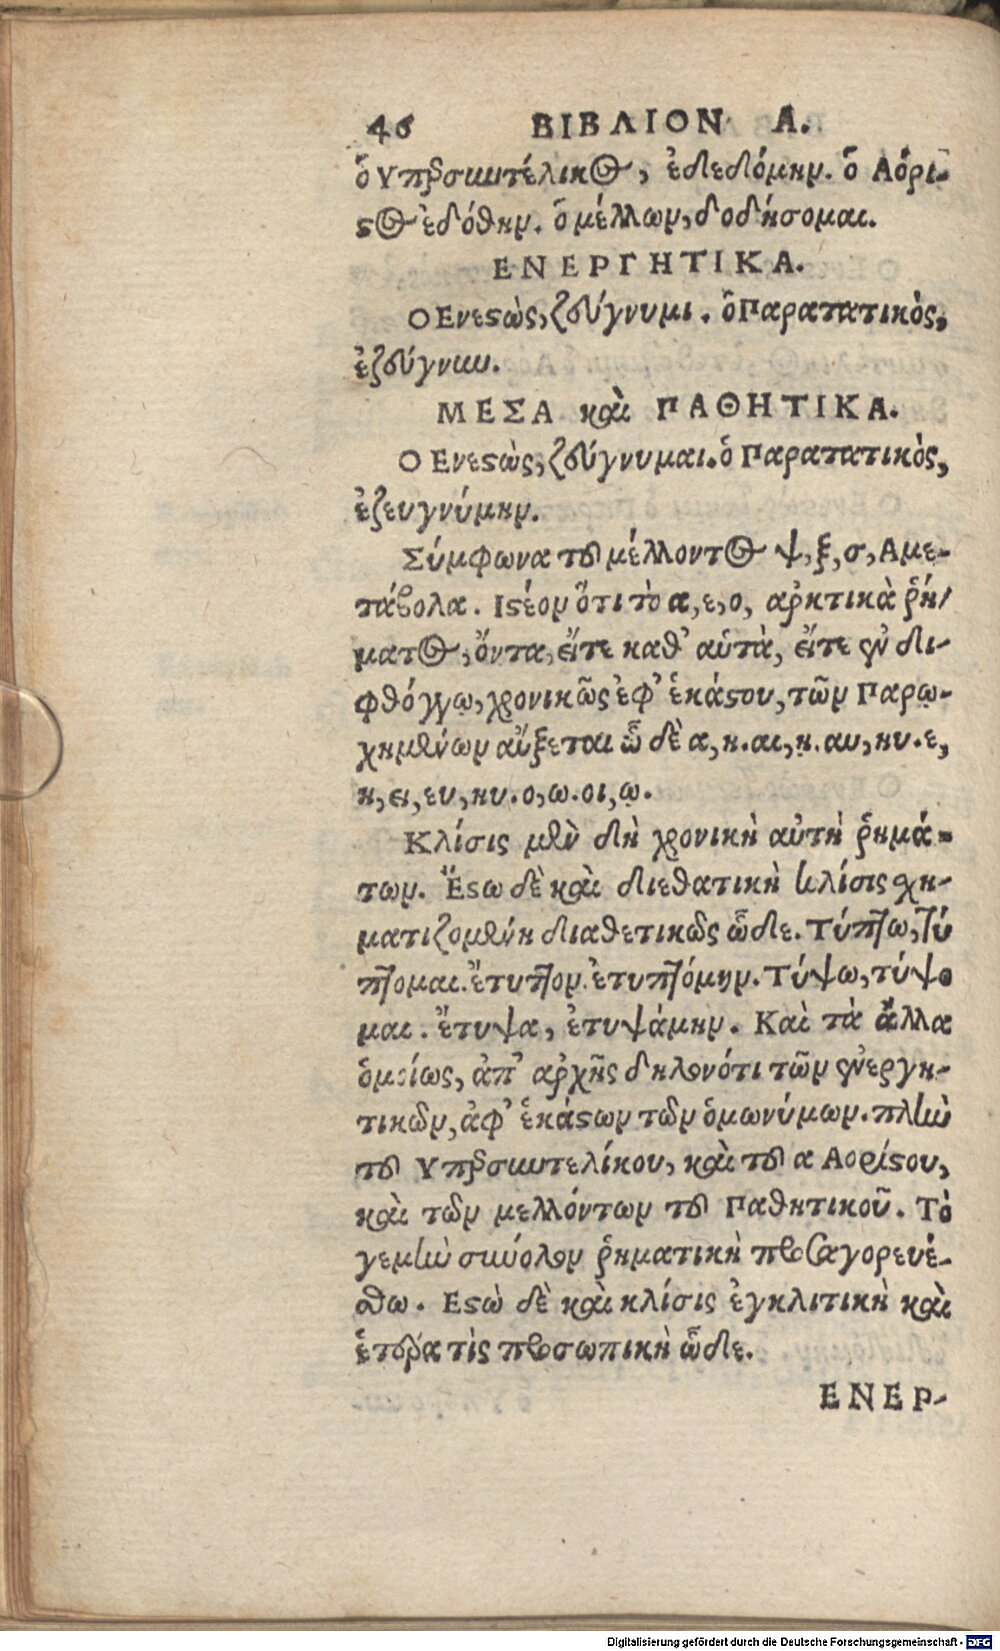 46 ΒΙΒΛΙΟΝ Α.
ὁ Υπερσυντέλικος, ἐδεδόμην. ὁ Αόρι-
ϛος ἐδόθην. ὁ μέλλων, δοδήσομαι.
ΕΝΕΡΓΗΤΙΚΑ.
Ο Ενεϛὼς, ζεύγνυμι. ὁ Παρατατικὸς,
ἐζεύγνυν.
ΜΕΣΑ καὶ ΠΑΘΗΤΙΚΑ.
Ο Ενεϛὼς, ζεύγνυμαι. ὁ Παρατατικὸς,
ἐζευγνύμην.
Σύμφωνα τοῦ μέλλοντος ψ, ξ, σ, Αμε-
τάβολα. Ιϛέον ὅτι τὸ α, ε, ο, αρκτικὰ ῥή-
ματος, ὄντα, εἴτε καθ’ αὑτὰ, εἴτε ἐν δι-
φθόγγῳ, χρονικῶς ἐφ’ ἑκάϛου, τῶν Παρῳ-
χημένων αὔξεται ὧ δὲ α, η. αι, ῃ. αυ, ηυ. ε,
η, ει, ευ, ηυ. ο, ω. οι, ῳ.
Κλίσις μὲν δὴ χρονικὴ αὐτὴ ῥημά-
των. Ἔϛω δὲ καὶ διεθατικὴ κλίσις σχη-
ματιζομένη διαθετικῶς ὧδε. Τύπτω, τύ
πτομαι. ἔτυπτον. ἐτυπτόμην. Τύψω, τύψο
μαι. ἔτυψα, ἐτυψάμην. Καὶ τὰ ἄλλα
ὁμοίως, ἀπ’ αρχῆς δηλονότι τῶν ἐνεργη-
τικῶν, ἀφ’ ἑκάϛων τῶν ὁμωνύμων. πλὴν
τοῦ Υπερσυντελίκου, καὶ τοῦ α Αορίϛου,
καὶ τῶν μελλόντων τοῦ Παθητικοῦ. Τὸ
γεμὴν σύνολον ῥηματικὴ προσαγορευέ-
σθω. Εϛὼ δὲ καὶ κλίσις ἐγκλιτικὴ καὶ
ἑτέρα τὶς προσωπικὴ ὧδε.
ΕΝΕΡ-
Digitalisierung gefördert durch die Deutsche Forschungsgemeinschaft - DFG